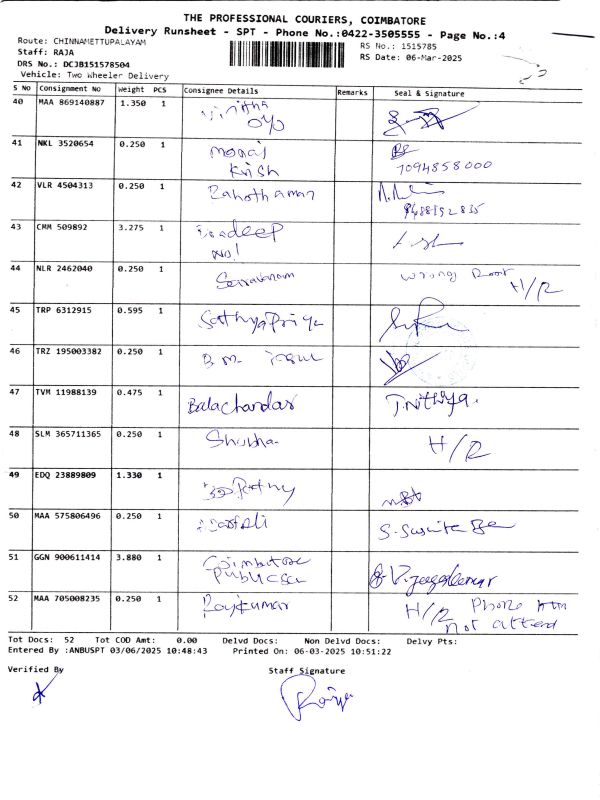 THE PROFESSIONAL COURIERS, COIMBATORE
Delivery Runsheet - SPT - Phone No.:0422-3505555 - Page No.:4
Route: CHINNAMETTUPALAYAM
Staff: RAJA
DRS No.: DCJB151578504
Vehicle: Two Wheeler Delivery
RS No.: 1515785
RS Date: 06-Mar-2025
S No Consignment No Weight PCS Consignee Details Remarks Seal & Signature
40 MAA 869140887 1.350 1
oyo
41 NKL 3520654 0.250 1 manoj
Krish
7094858000
42 VLR 4504313 0.250 1
43 CMM 509892 3.275 1 Pradeep
44 NLR 2462040 0.250 1 Saravanan wrong Root
H/R
45 TRP 6312915 0.595 1 Sathya Priya
46 TRZ 195003382 0.250 1 B.M.
47 TVM 11988139 0.475 1 Balachandar T.Nithya.
48 SLM 365711365 0.250 1 Shobha H/R
49 EDQ 23889809 1.330 1
50 MAA 575806496 0.250 1
51 GGN 900611414 3.880 1 Coimbatore
Public
52 MAA 705008235 0.250 1 Rajkumar H/R Phone
not attend
Tot Docs: 52 Tot COD Amt: 0.00 Delvd Docs: Non Delvd Docs: Delvy Pts:
Entered By :ANBUSPT 03/06/2025 10:48:43 Printed On: 06-03-2025 10:51:22
Verified By Staff Signature